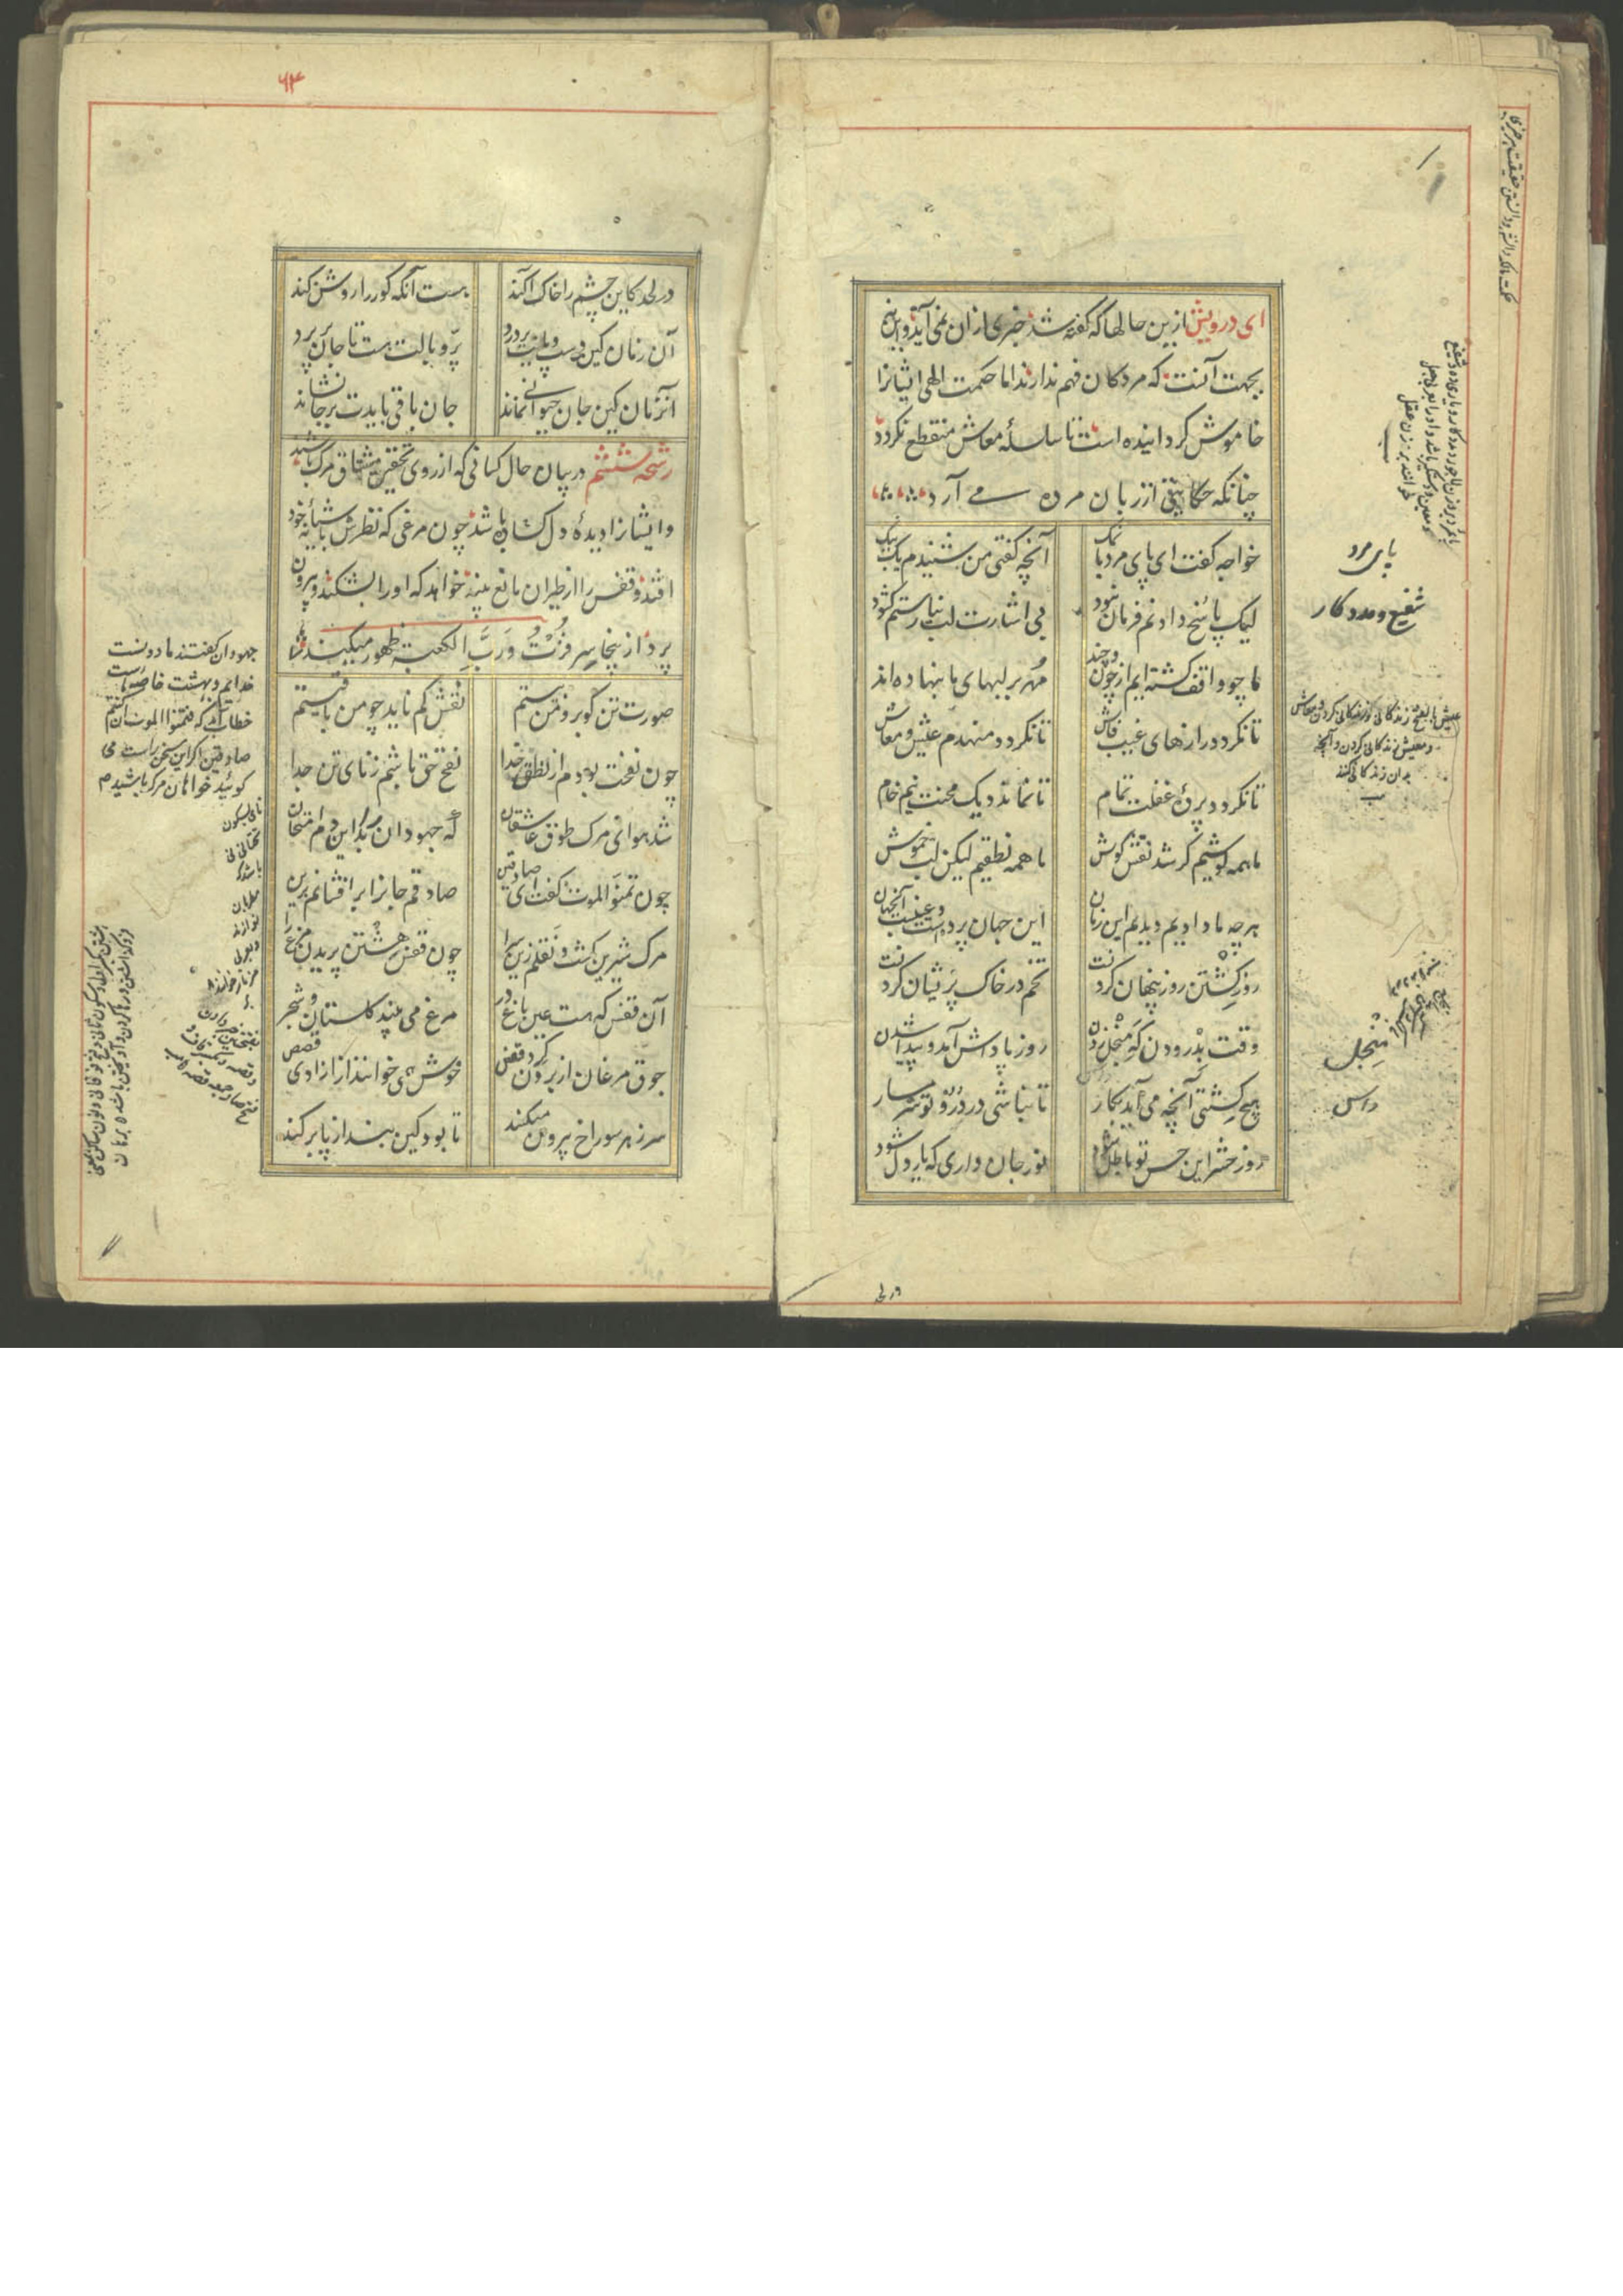 ای درویش ازین حالها که گفته شد خبری ازان نمی آید و این نیم
بجهت آنست که مردکان فهم ندارند اما حکمت الهی ایشانرا
خاموش کردانیده است تا سلسلهٔ معاش منقطع نکردد
چنانکه حکایتی از زبان مرده می آرد
خواجه کفت ای پای مرد با نمک
آنچه کفتی من شنیدم یک بیک
لیک پاسخ دادنم فرمان نبود
بی اشارت لب نیارستم کشود
ما چو واقف کشته ایم از چون و چند
مُهر بر لبهای ما بنهاده اند
تا نکردد رازهای غیب فاش
تا نکردد منهدم عیش و معاش
تا نکردد پردهٔ غفلت تمام
تا نماند دیک محنت نیم خام
ما همه کوشیم کر شد نقش کوش
ما همه نطقیم لیکن لب خموش
هرچه ما دادیم دیدیم این زمان
این جهان پرده است و عینست آنجهان
روز کِشتن روز پنهان کردنست
تخم در خاک پریشان کردنست
وقت بِدْرودن کَهِ مِنْجل زدن
روز پاداش آمد و پیدا شدن
هیچ کِشتی آنچه می آید بکار
تا نباشی در دِرَو تو شرمسار
روز حشر این حس تو باطل شود
نور جان داری که یار دل شود
در لحد
پای مرد
شفیع و مددکار
عیش بالفتح زندکانی و زندکانی کردن و معاش
و معیش زندکانی کردن و آنچه
بدان زندکانی کنند
مِنْجل
داس
۶۳
در لحد کاین چشم را خاک آکند
هست آنکه کور را روشن کند
آن زمان کین دست و پایت بردرد
پرّ و بالت هست تا جان پرد
آنزمان کین جان حیوانی نماند
جان باقی بایدت بر جا نشاند
رشحه ششم در بیان حال کسانی که از روی تحقیق مشتاق مرک باشند
و ایشانرا دیدهٔ دل کشاده باشد چون مرغی که نظرش بآشیانهٔ خود
افتد و قفس را از طیران مانع بیند خواهد که اورا بشکند و بیرون
پرد از ینجا سِر فُزْتُ وَرَبَّ الکعبه ظهور میکند
صورت تن کو برو من کیستم
نقش کم ناید چو من باقیستم
چون نفخت بودم از لطف خدا
نفخ حق باشم ز نای تن جدا
شد هوای مرک طوق عاشقان
که جهودان را بُد این دم امتحان
چون تمنّو الموت کفت ای صادقین
صادقم جانرا برافشانم برین
مرک شیرین کشت و نَقلم زین سرا
چون قفس هِشتن پریدن مرغ را
آن قفس که هست عین باغ در
مرغ می بیند کلستان و شجر
جوق مرغان از برون کرد قفس
خوش همی خوانند از آزادی قصص
سر ز هر سوراخ بیرون میکند
تا بود کین بند از پا برکند
جهودان کفتند ما دوست
خدایم و بهشت خاصه ماست
خطاب آمد که فتمنوا الموت ان کنتم
صادقین اکر این سخن راست می
کوئید خواهان مرک باشید